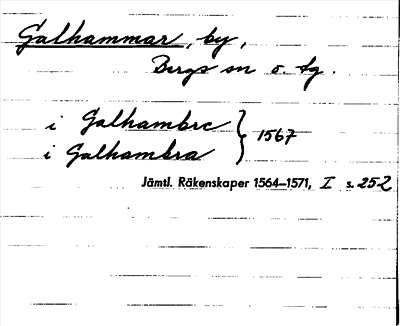 Galhammar, by,
Bergs sn o. tg.
i Galhambre } 1567
i Galhambra
Jämtl. Räkenskaper 1564–1571, I s. 252